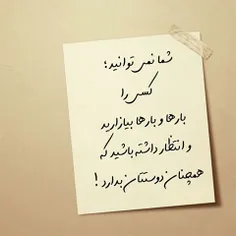 شما نمی توانید؛
کسی را
بارها و بارها بیازارید
و انتظار داشته باشید که
همچنان دوستتان بدارد !